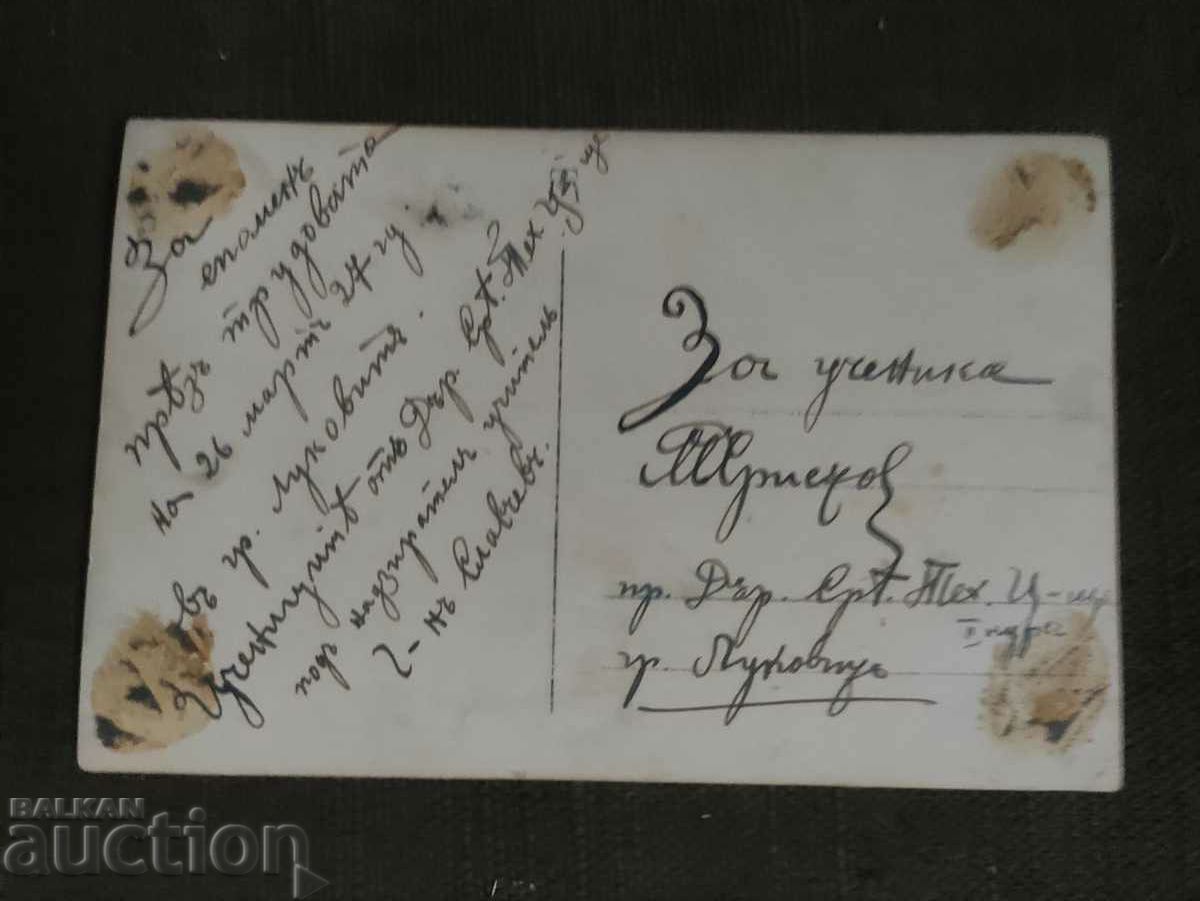 За
споменъ
прѣзъ трудовата
на 26 мартъ 27 г
въ гр. Луковитъ.
Ученицитѣ отъ Дър. Срѣ. Тех. Уч-ще
подъ надзирателъ учитель
Г-нъ Славчевъ.
За ученика
пр. Дър. Срѣ. Тех. У-ще
I курсъ
гр. Луковитъ
BALKAN
auction